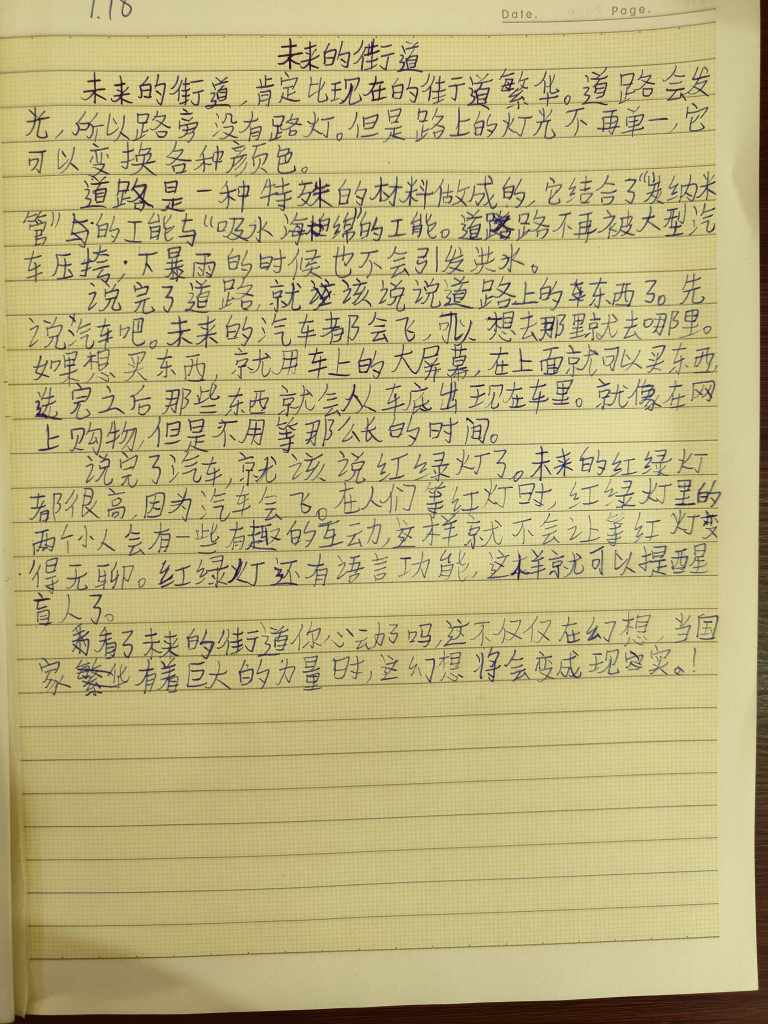 1.18
Date.
Page.
未来的街道
未来的街道,肯定比现在的街道繁华。道路会发
光,所以路旁没有路灯。但是路上的灯光不再单一,它
可以变换各种颜色。
道路是一种特殊的材料做成的,它结合了“纳米
管”与的工能与“吸水海绵”的工能。道路不再被大型汽
车压垮;下暴雨的时候也不会引发洪水。
说完了道路,就该说说道路上的东西了。先
说汽车吧。未来的汽车都会飞,可以想去那里就去哪里。
如果想买东西,就用车上的大屏幕,在上面就可以买东西,
选完之后那些东西就会从车底出现在车里。就像在网
上购物,但是不用等那么长的时间。
说完了汽车,就该说红绿灯了。未来的红绿灯
都很高,因为汽车会飞。在人们等红灯时,红绿灯里的
两个小人会有一些有趣的互动,这样就不会让等红灯变
得无聊。红绿灯还有语言功能,这样就可以提醒
盲人了。
看了未来的街道你心动了吗,这不仅仅在幻想,当国
家繁华有着巨大的力量时,这幻想将会变成现实。!